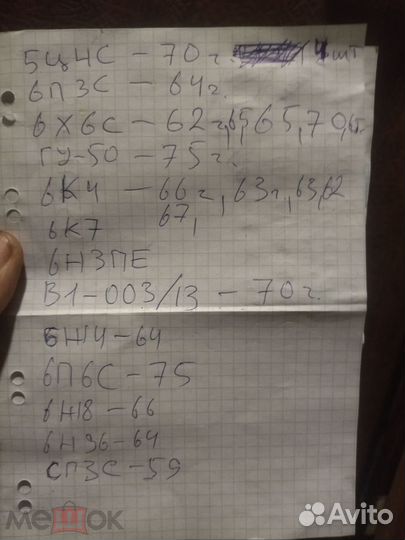 5Ц4С – 70г. 4 шт
6П3С – 64г.
6Х6С – 62г, 65, 65, 70,
ГУ-50 – 75г.
6К4 – 66г, 63г, 63, 62
67,
6К7
6Н3ПЕ
В1-003/13 – 70г.
6Ж4-64
6П6С-75
6Ж8-66
6Н36-64
СП3С-59
мешок
Avito